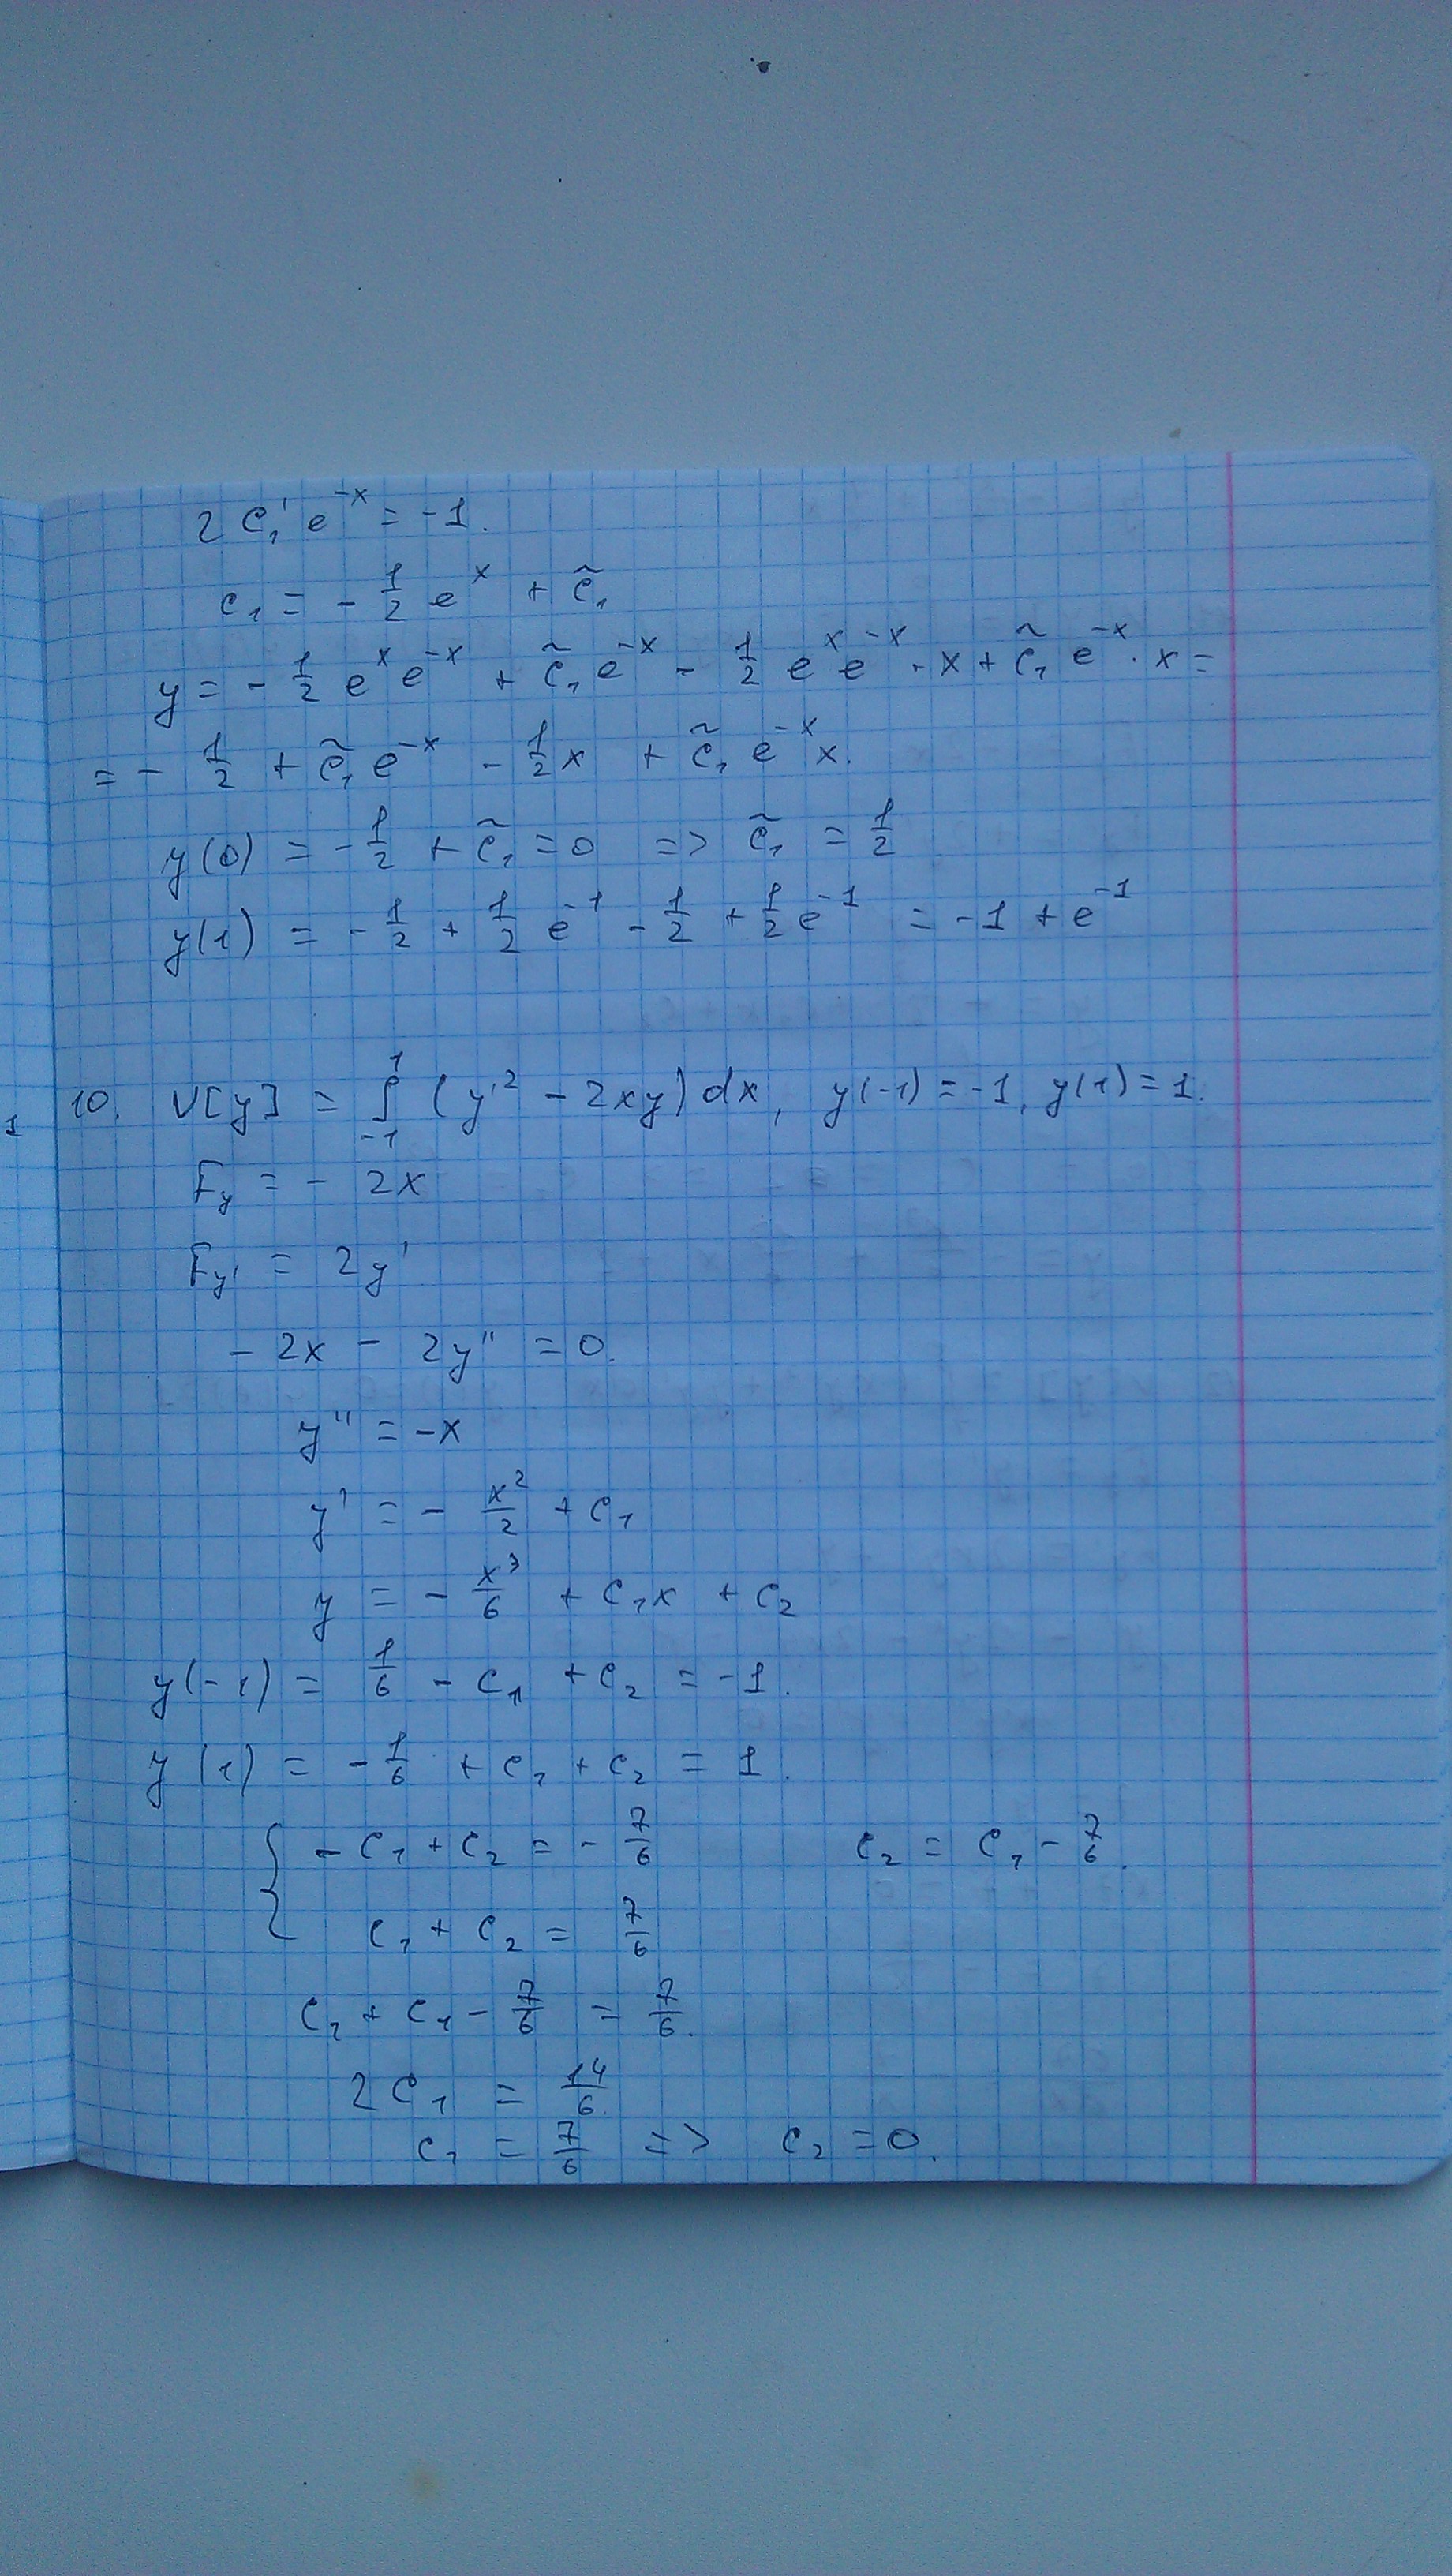 2 c₁' e^{-x} = -1.
c₁ = - 1/2 e^x + c̃₁
y = - 1/2 e^x e^{-x} + c̃₁ e^{-x} - 1/2 e^x e^{-x} · x + c̃₁ e^{-x} · x =
= - 1/2 + c̃₁ e^{-x} - 1/2 x + c̃₁ e^{-x} x.
y(0) = - 1/2 + c̃₁ = 0 => c̃₁ = 1/2
y(1) = - 1/2 + 1/2 e^{-1} - 1/2 + 1/2 e^{-1} = -1 + e^{-1}
10. V[y] = ∫_{-1}^{1} (y'² - 2xy) dx, y(-1) = -1, y(1) = 1.
F_y = - 2x
F_{y'} = 2y'
- 2x - 2y'' = 0.
y'' = -x
y' = - x²/2 + c₁
y = - x³/6 + c₁x + c₂
y(-1) = 1/6 - c₁ + c₂ = -1.
y(1) = - 1/6 + c₁ + c₂ = 1.
{ - c₁ + c₂ = - 7/6 c₂ = c₁ - 7/6.
c₁ + c₂ = 7/6
c₁ + c₁ - 7/6 = 7/6.
2c₁ = 14/6.
c₁ = 7/6 => c₂ = 0.
1